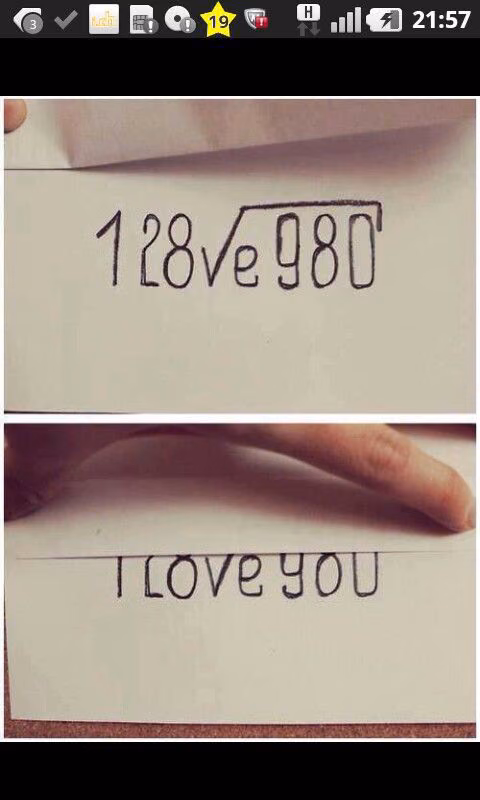 3 19 H 21:57
128√e980
I Love you